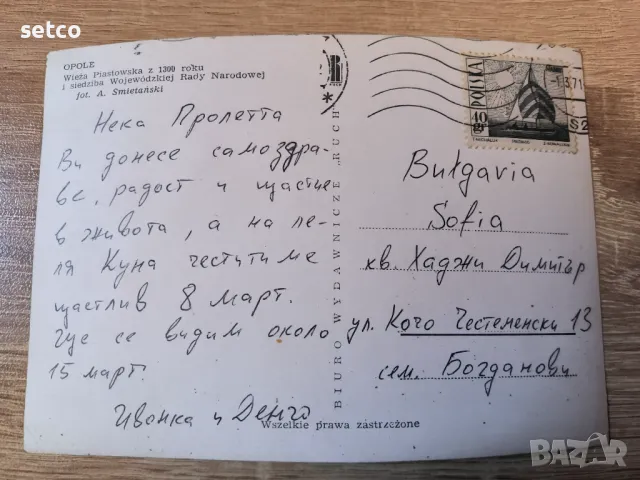 setco
OPOLE
Wieża Piastowska z 1300 roku
i siedziba Wojewódzkiej Rady Narodowej
fot. A. Śmietański
Нека Пролетта
Ви донесе самоздра-
ве, радост и щастие
в живота, а на ле-
ля Куна честитиме
щастлив 8 март.
Ще се видим около
15 март.
Иванка и Денчо
BIURO WYDAWNICZE „RUCH"
Wszelkie prawa zastrzeżone
POLSKA
40
GR
3.71
Bułgavia
Sofia
кв. Хаджи Димитър
ул. Кочо Честеменски 13
сем. Богданови
BAZAR